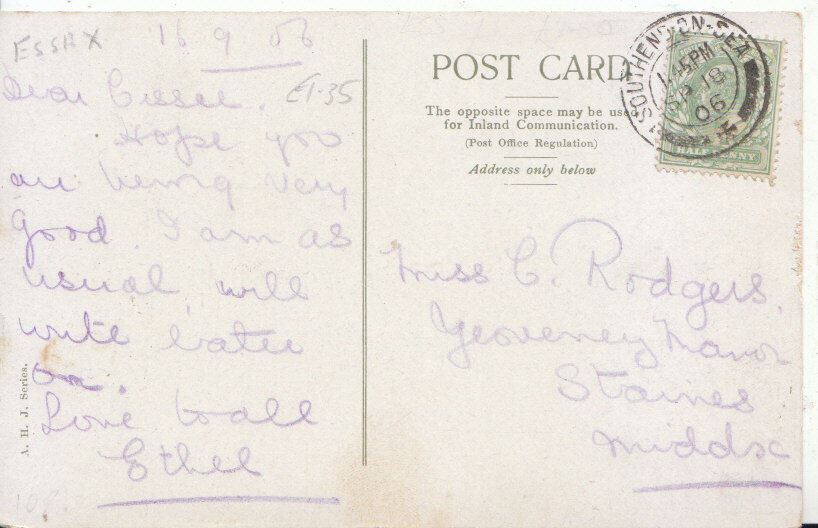 ESSEX
16 9 06
£1-35
Dear Cissie.
Hope you
are being very
good. I am as
usual, will
write later
on.
Love to all
Ethel
A. H. J. Series.
POST CARD
The opposite space may be used
for Inland Communication.
(Post Office Regulation)
Address only below
SOUTHEND-ON-SEA
1.45PM
SP 18
06
HALFPENNY
Miss C. Rodgers.
Yeoveney Manor
Staines
Middx